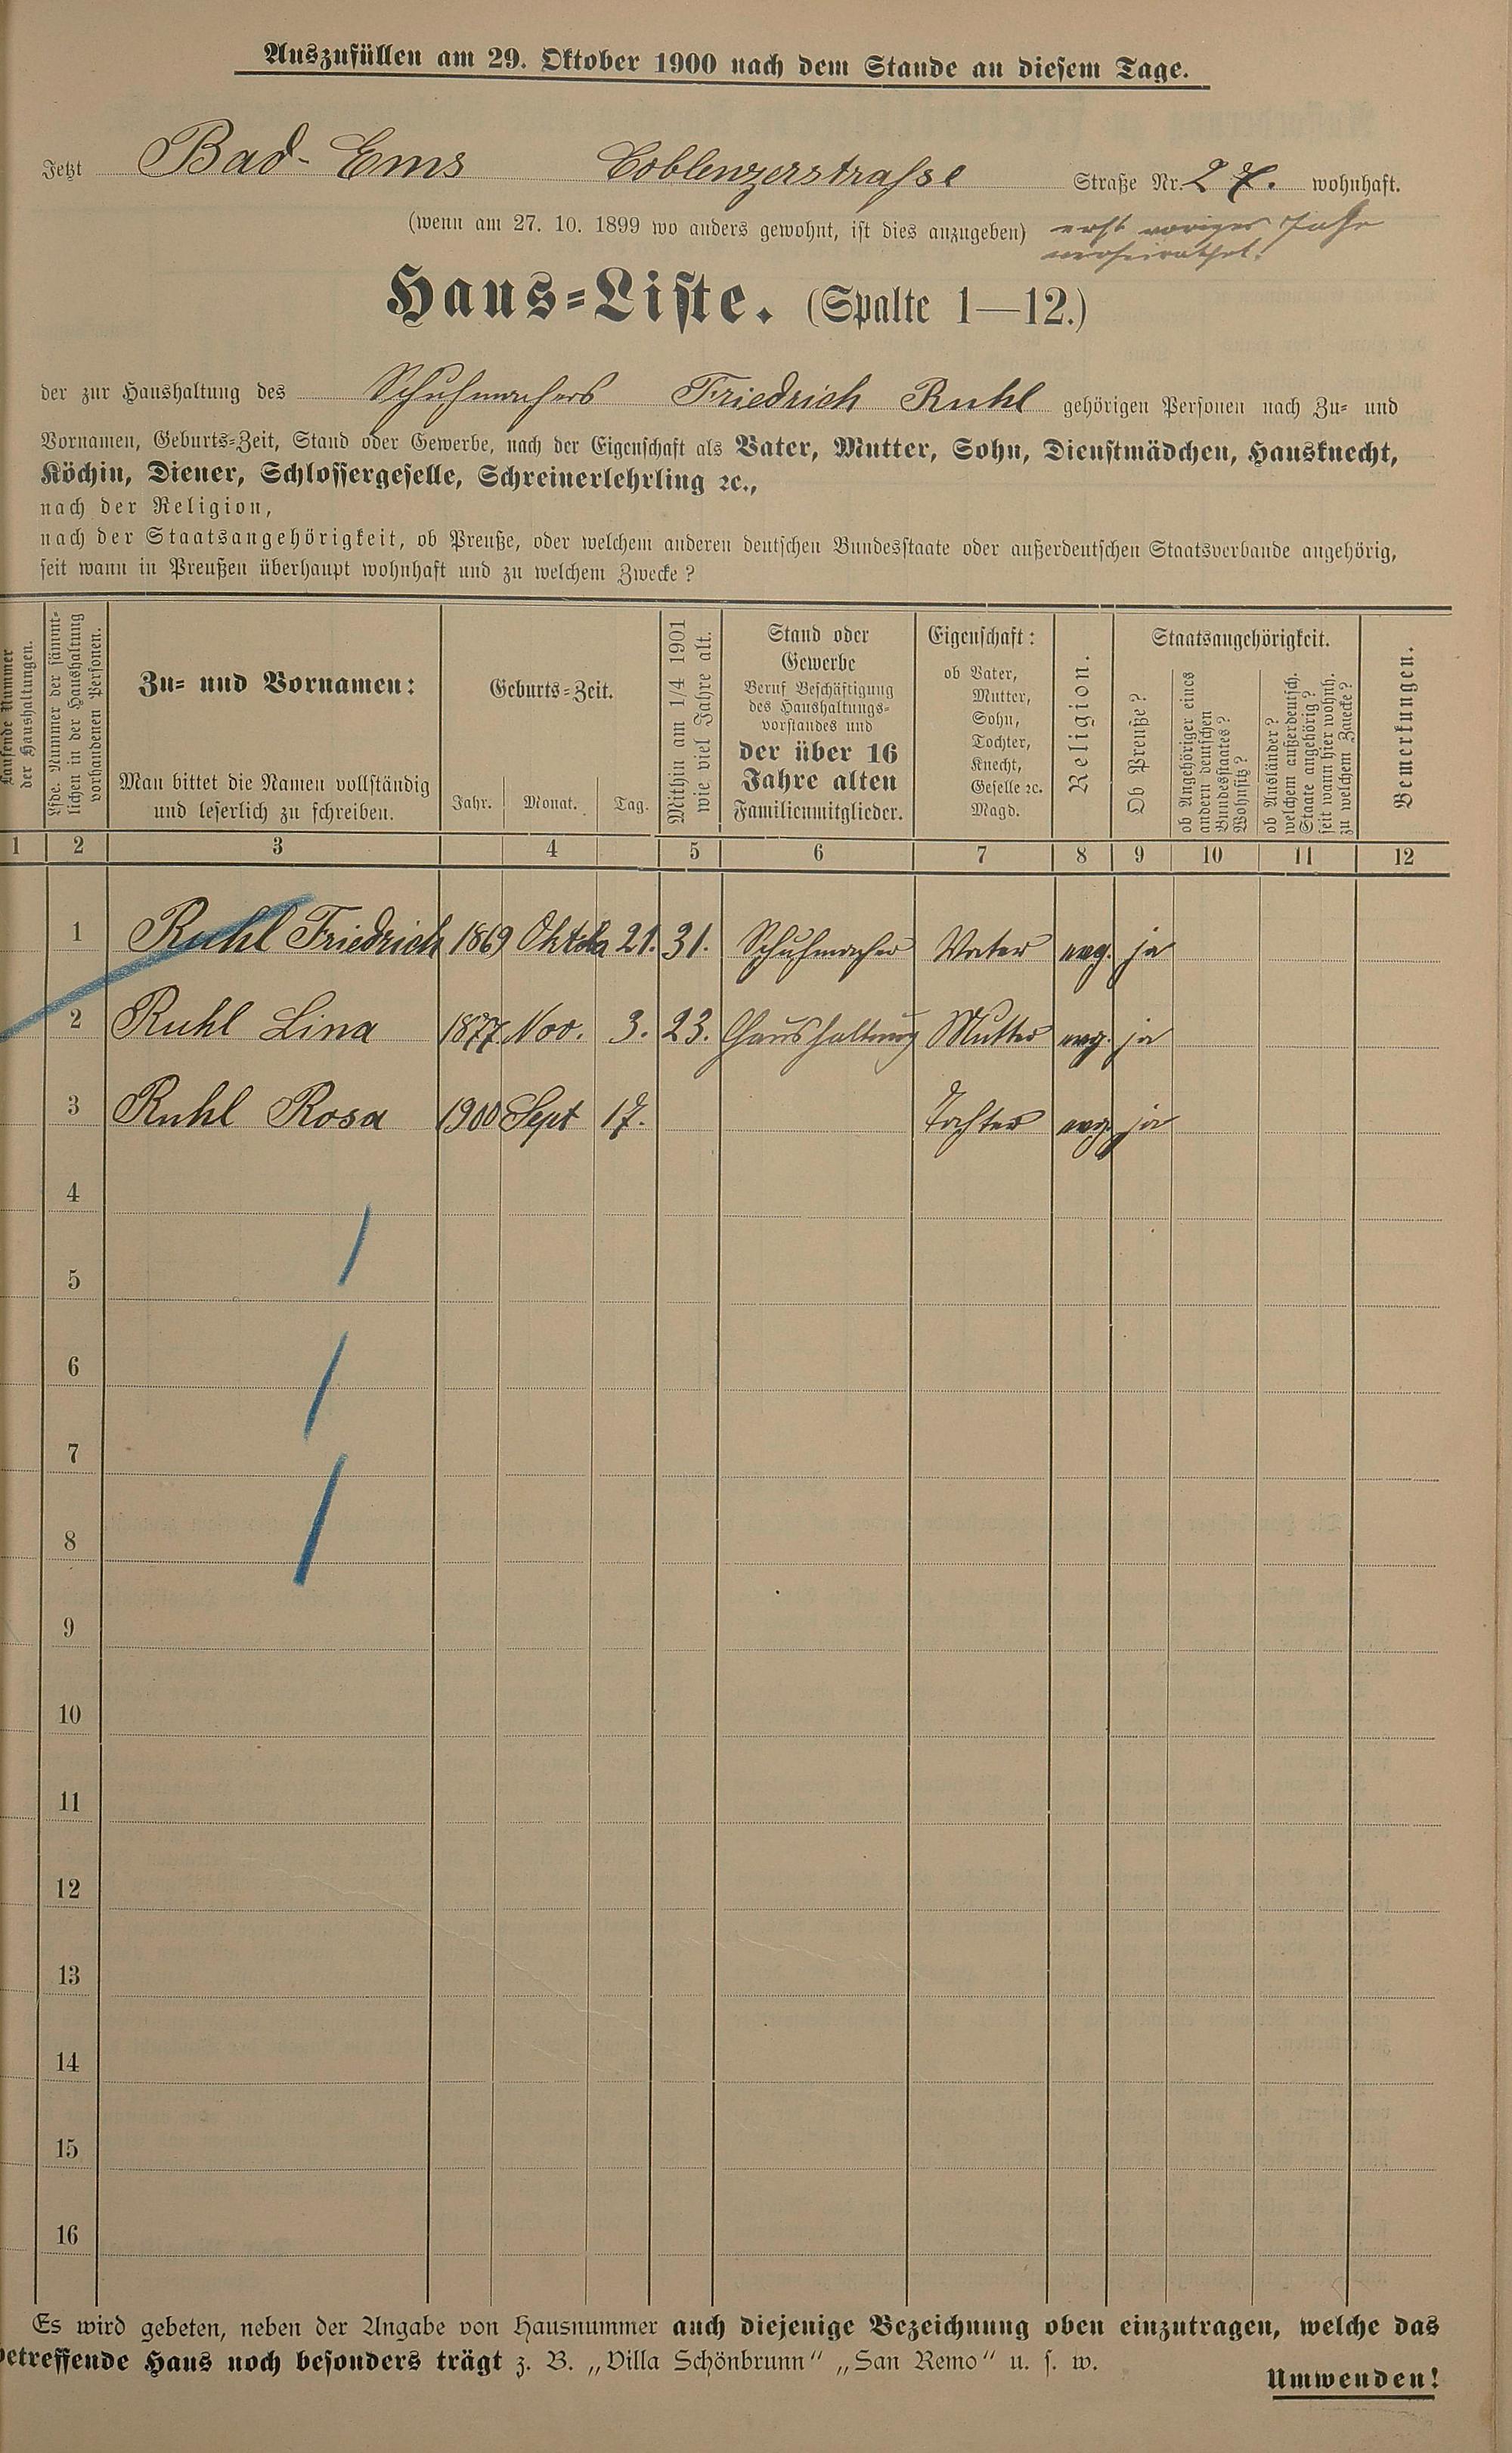 Auszufüllen am 29. Oktober 1900 nach dem Stande an diesem Tage.
Jetzt Bad-Ems Coblenzerstraſse Straße Nr. 27. wohnhaft.
(wenn am 27. 10. 1899 wo anders gewohnt, ist dies anzugeben) erst voriges Jahr
verheirathet.
Haus-Liste. (Spalte 1—12.)
der zur Haushaltung des Schuhmachers Friedrich Ruhl gehörigen Personen nach Zu- und
Vornamen, Geburts-Zeit, Stand oder Gewerbe, nach der Eigenschaft als Vater, Mutter, Sohn, Dienstmädchen, Hausknecht,
Köchin, Diener, Schlossergeselle, Schreinerlehrling ꝛc.,
nach der Religion,
nach der Staatsangehörigkeit, ob Preuße, oder welchem anderen deutschen Bundesstaate oder außerdeutschen Staatsverbande angehörig,
seit wann in Preußen überhaupt wohnhaft und zu welchem Zwecke?
Laufende Nummer
der Haushaltungen.
Lfde. Nummer der sämmt-
lichen in der Haushaltung
vorhandenen Personen.
Zu- und Vornamen:
Man bittet die Namen vollständig
und leserlich zu schreiben.
Geburts-Zeit.
Jahr. Monat. Tag.
Mithin am 1/4 1901
wie viel Jahre alt.
Stand oder
Gewerbe
Beruf Beschäftigung
des Haushaltungs-
vorstandes und
der über 16
Jahre alten
Familienmitglieder.
Eigenschaft:
ob Vater,
Mutter,
Sohn,
Tochter,
Knecht,
Geselle ꝛc.
Magd.
Religion.
Staatsangehörigkeit.
Ob Preuße?
ob Angehöriger eines
andern deutschen
Bundesstaates?
Wohnsitz?
ob Ausländer?
welchem außerdeutsch.
Staate angehörig?
seit wann hier wohnh.
zu welchem Zwecke?
Bemerkungen.
1 2 3 4 5 6 7 8 9 10 11 12
1 Ruhl Friedrich 1869 Oktober 21. 31. Schuhmacher Vater evg. ja
2 Ruhl Lina 1877 Nov. 3. 23. Haushaltung Mutter evg. ja
3 Ruhl Rosa 1900 Sept 17. Tochter evg. ja
4
5
6
7
8
9
10
11
12
13
14
15
16
Es wird gebeten, neben der Angabe von Hausnummer auch diejenige Bezeichnung oben einzutragen, welche das
betreffende Haus noch besonders trägt z. B. „Villa Schönbrunn“ „San Remo“ u. s. w.
Umwenden!